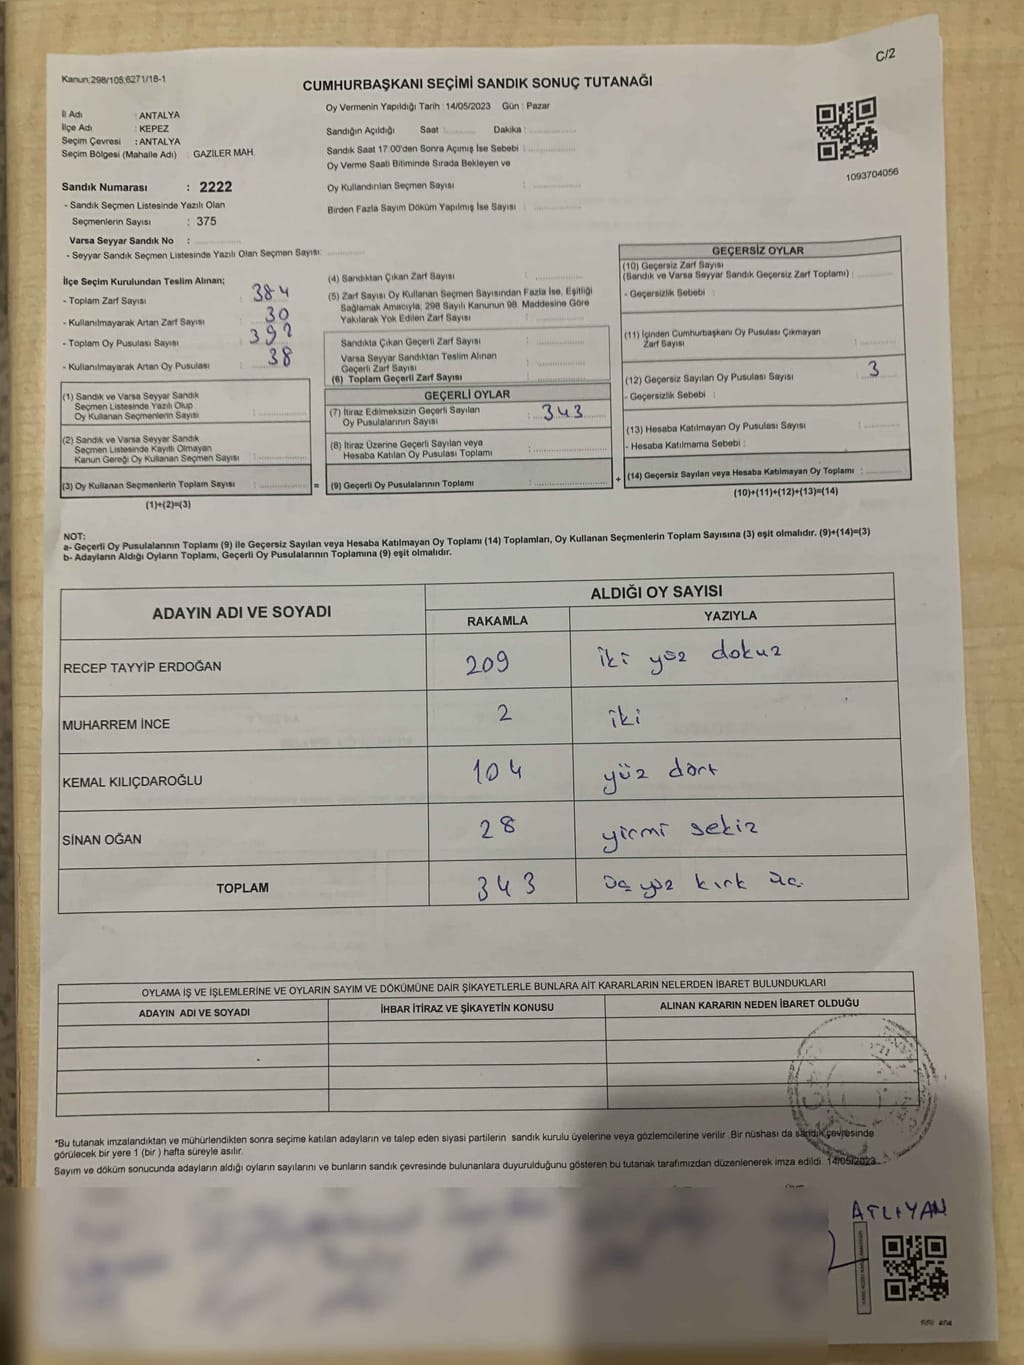 C/2
Kanun:298/105;6271/16-1
CUMHURBAŞKANI SEÇİMİ SANDIK SONUÇ TUTANAĞI
İl Adı : ANTALYA
İlçe Adı : KEPEZ
Seçim Çevresi : ANTALYA
Seçim Bölgesi (Mahalle Adı) : GAZİLER MAH.
Oy Vermenin Yapıldığı Tarih : 14/05/2023 Gün : Pazar
Sandığın Açıldığı Saat : Dakika :
Sandık Saat 17:00'den Sonra Açımış İse Sebebi :
Oy Verme Saati Bitiminde Sırada Bekleyen ve
Oy Kullandırılan Seçmen Sayısı :
Birden Fazla Sayım Döküm Yapılmış İse Sayısı :
1093704056
Sandık Numarası : 2222
- Sandık Seçmen Listesinde Yazılı Olan
Seçmenlerin Sayısı : 375
Varsa Seyyar Sandık No :
- Seyyar Sandık Seçmen Listesinde Yazılı Olan Seçmen Sayısı:
İlçe Seçim Kurulundan Teslim Alınan;
- Toplam Zarf Sayısı : 384
- Kullanılmayarak Artan Zarf Sayısı : 30
- Toplam Oy Pusulası Sayısı :
- Kullanılmayarak Artan Oy Pusulası : 38
(1) Sandık ve Varsa Seyyar Sandık
Seçmen Listesinde Yazılı Olup
Oy Kullanan Seçmenlerin Sayısı :
(2) Sandık ve Varsa Seyyar Sandık
Seçmen Listesinde Kayıtlı Olmayan
Kanun Gereği Oy Kullanan Seçmen Sayısı :
(3) Oy Kullanan Seçmenlerin Toplam Sayısı : =
(1)+(2)=(3)
(4) Sandıktan Çıkan Zarf Sayısı :
(5) Zarf Sayısı Oy Kullanan Seçmen Sayısından Fazla İse, Eşitliği
Sağlamak Amacıyla, 298 Sayılı Kanunun 98. Maddesine Göre
Yakılarak Yok Edilen Zarf Sayısı :
Sandıkta Çıkan Geçerli Zarf Sayısı :
Varsa Seyyar Sandıktan Teslim Alınan
Geçerli Zarf Sayısı :
(6) Toplam Geçerli Zarf Sayısı :
GEÇERLİ OYLAR
(7) İtiraz Edilmeksizin Geçerli Sayılan
Oy Pusulalarının Sayısı : 343
(8) İtiraz Üzerine Geçerli Sayılan veya
Hesaba Katılan Oy Pusulası Toplamı :
(9) Geçerli Oy Pusulalarının Toplamı : +
GEÇERSİZ OYLAR
(10) Geçersiz Zarf Sayısı
(Sandık ve Varsa Seyyar Sandık Geçersiz Zarf Toplamı) :
- Geçersizlik Sebebi :
(11) İçinden Cumhurbaşkanı Oy Pusulası Çıkmayan
Zarf Sayısı :
(12) Geçersiz Sayılan Oy Pusulası Sayısı : 3
- Geçersizlik Sebebi :
(13) Hesaba Katılmayan Oy Pusulası Sayısı :
- Hesaba Katılmama Sebebi :
(14) Geçersiz Sayılan veya Hesaba Katılmayan Oy Toplamı :
(10)+(11)+(12)+(13)=(14)
NOT:
a- Geçerli Oy Pusulalarının Toplamı (9) ile Geçersiz Sayılan veya Hesaba Katılmayan Oy Toplamı (14) Toplamları, Oy Kullanan Seçmenlerin Toplam Sayısına (3) eşit olmalıdır. (9)+(14)=(3)
b- Adayların Aldığı Oyların Toplamı, Geçerli Oy Pusulalarının Toplamına (9) eşit olmalıdır.
ADAYIN ADI VE SOYADI
ALDIĞI OY SAYISI
RAKAMLA YAZIYLA
RECEP TAYYİP ERDOĞAN 209 iki yüz dokuz
MUHARREM İNCE 2 iki
KEMAL KILIÇDAROĞLU 104 yüz dört
SİNAN OĞAN 28 yirmi sekiz
TOPLAM 343 üç yüz kırk üç
OYLAMA İŞ VE İŞLEMLERİNE VE OYLARIN SAYIM VE DÖKÜMÜNE DAİR ŞİKAYETLERLE BUNLARA AİT KARARLARIN NELERDEN İBARET BULUNDUKLARI
ADAYIN ADI VE SOYADI İHBAR İTİRAZ VE ŞİKAYETİN KONUSU ALINAN KARARIN NEDEN İBARET OLDUĞU
*Bu tutanak imzalandıktan ve mühürlendikten sonra seçime katılan adayların ve talep eden siyasi partilerin sandık kurulu üyelerine veya gözlemcilerine verilir .Bir nüshası da sandık çevresinde
görülecek bir yere 1 (bir ) hafta süreyle asılır.
Sayım ve döküm sonucunda adayların aldığı oyların sayılarını ve bunların sandık çevresinde bulunanlara duyurulduğunu gösteren bu tutanak tarafımızdan düzenlenerek imza edildi. 14/05/2023
ATLIYAN